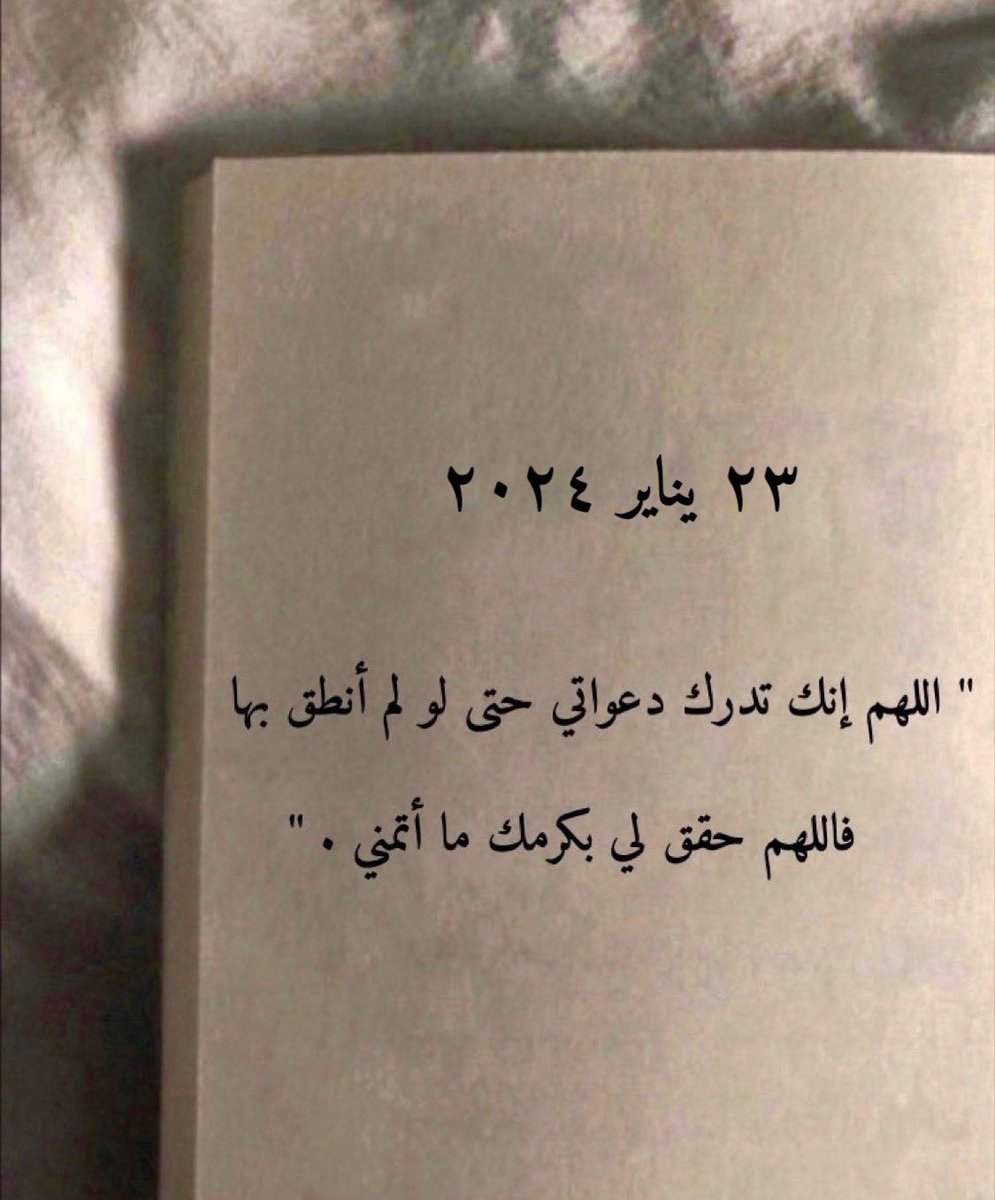 ٢٣ يناير ٢٠٢٤
" اللهم إنك تدرك دعواتي حتى لو لم أنطق بها
فاللهم حقق لي بكرمك ما أتمني . "